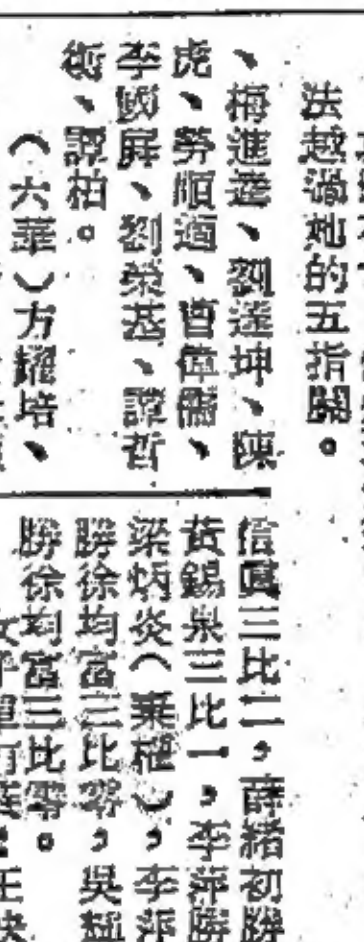 法越過她的五指關。
、梅進達、劉達坤、陳
虎、勞順適、曹偉儒、
李國屏、劉榮基、譚哲
衡、譚柏。
(六華)方耀培、
信眞三比二,薛緒初勝
黃錫泉三比一,李萍勝
梁炳炎(棄權),李萍
勝徐均富三比零,吳
勝徐均富三比零。